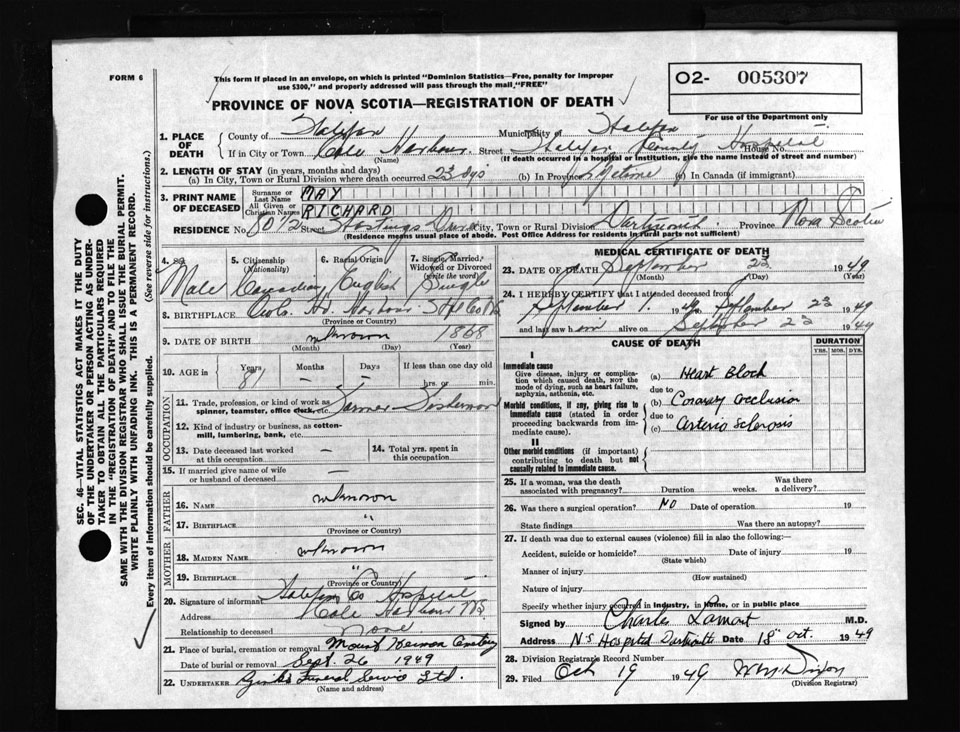 FORM 6
This form if placed in an envelope, on which is printed "Dominion Statistics—Free, penalty for improper
use $300," and properly addressed will pass through the mail, "FREE"
PROVINCE OF NOVA SCOTIA—REGISTRATION OF DEATH
02- 005307
For use of the Department only
SEC. 46—VITAL STATISTICS ACT MAKES IT THE DUTY
OF THE UNDERTAKER OR PERSON ACTING AS UNDER-
TAKER TO OBTAIN ALL THE PARTICULARS REQUIRED
IN THE "REGISTRATION OF DEATH" AND TO FILE THE
SAME WITH THE DIVISION REGISTRAR WHO SHALL ISSUE THE BURIAL PERMIT.
WRITE PLAINLY WITH UNFADING INK. THIS IS A PERMANENT RECORD.
Every item of information should be carefully supplied. (See reverse side for instructions.)
1. PLACE OF DEATH
County of Halifax Municipality of Halifax
If in City or Town Cole Harbour Street Halifax County Hospital House No.
(Name) (If death occurred in a hospital or institution, give the name instead of street and number)
2. LENGTH OF STAY (in years, months and days)
(a) In City, Town or Rural Division where death occurred 23 dys (b) In Province Lifetime (c) In Canada (if immigrant)
3. PRINT NAME OF DECEASED
Surname or Last Name MAY
All Given or Christian Names RICHARD
RESIDENCE No. 80 1/2 Street Hastings Drive City, Town or Rural Division Dartmouth Province Nova Scotia
(Residence means usual place of abode. Post Office Address for residents in rural parts not sufficient)
4. SEX Male
5. Citizenship (Nationality) Canadian
6. Racial Origin English
7. Single, Married, Widowed or Divorced (write the word) Single
8. BIRTHPLACE Hd. Harbour
(Province or Country)
9. DATE OF BIRTH unknown 1868
(Month) (Day) (Year)
10. AGE in Years 81 Months — Days — If less than one day old hrs. or min.
OCCUPATION
11. Trade, profession, or kind of work as spinner, teamster, office clerk, etc. Farmer Fisherman
12. Kind of industry or business, as cotton-mill, lumbering, bank, etc.
13. Date deceased last worked at this occupation —
14. Total yrs. spent in this occupation
15. If married give name of wife or husband of deceased
FATHER
16. Name unknown
17. Birthplace "
(Province or Country)
MOTHER
18. Maiden Name unknown
19. Birthplace "
(Province or Country)
20. Signature of informant Halifax Co Hospital
Address Cole Harbour NS
Relationship to deceased none
21. Place of burial, cremation or removal Mount Hermon Cemetery
Date of burial or removal Sept. 26 1949
22. Undertaker Funeral Service Ltd.
(Name and address)
MEDICAL CERTIFICATE OF DEATH
23. DATE OF DEATH September 23 1949
(Month) (Day)
24. I HEREBY CERTIFY that I attended deceased from
September 1 1949 September 23 1949
and last saw him alive on September 23 1949
CAUSE OF DEATH
DURATION
YRS. MOS. DYS.
I
Immediate cause
Give disease, injury or complication which caused death, NOT the mode of dying, such as heart failure, asphyxia, asthenia, etc.
(a) Heart Block
due to
Morbid conditions, if any, giving rise to immediate cause (stated in order proceeding backwards from immediate cause).
(b) Coronary occlusion
due to
(c) Arterio sclerosis
II
Other morbid conditions (if important) contributing to death but not causally related to immediate cause.
25. If a woman, was the death associated with pregnancy? Duration weeks. Was there a delivery?
26. Was there a surgical operation? NO Date of operation 19
State findings Was there an autopsy?
27. If death was due to external causes (violence) fill in also the following:—
Accident, suicide or homicide? Date of injury 19
(State which)
Manner of injury
(How sustained)
Nature of injury
Specify whether injury occurred in industry, in home, or in public place
Signed by Charles Lamont M.D.
Address NS Hospital Dartmouth Date 18 Oct. 1949
28. Division Registrar's Record Number
29. Filed Oct 19 1949
(Division Registrar)